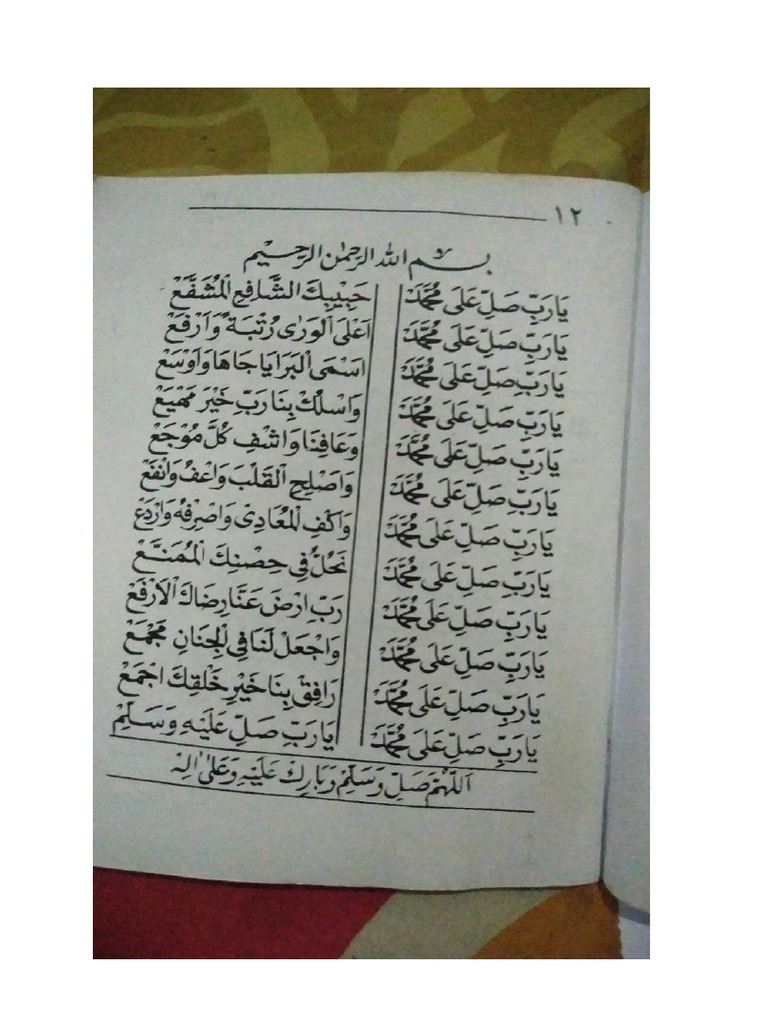 ١٢
بِسْمِ اللهِ الرَّحْمٰنِ الرَّحِيْمِ
يَارَبِّ صَلِّ عَلَى مُحَمَّدْ حَبِيْبِكَ الشَّافِعِ الْمُشَفَّعْ
يَارَبِّ صَلِّ عَلَى مُحَمَّدْ اَعْلَى الْوَرٰى رُتْبَةً وَاَرْفَعْ
يَارَبِّ صَلِّ عَلَى مُحَمَّدْ اَسْمَى الْبَرَايَا جَاهًا وَاَوْسَعْ
يَارَبِّ صَلِّ عَلَى مُحَمَّدْ وَاسْلُكْ بِنَا رَبِّ خَيْرَ مَهْيَعْ
يَارَبِّ صَلِّ عَلَى مُحَمَّدْ وَعَافِنَا وَاشْفِ كُلَّ مُوْجَعْ
يَارَبِّ صَلِّ عَلَى مُحَمَّدْ وَاَصْلِحِ الْقَلْبَ وَاعْفُ وَانْفَعْ
يَارَبِّ صَلِّ عَلَى مُحَمَّدْ وَاكْفِ الْمُعَادِيْ وَاصْرِفْهُ وَارْدَعْ
يَارَبِّ صَلِّ عَلَى مُحَمَّدْ نَحُلُّ فِي حِصْنِكَ الْمُمَنَّعْ
يَارَبِّ صَلِّ عَلَى مُحَمَّدْ رَبِّ ارْضَ عَنَّا رِضَاكَ الْاَرْفَعْ
يَارَبِّ صَلِّ عَلَى مُحَمَّدْ وَاجْعَلْ لَنَا فِي الْجِنَانِ مَجْمَعْ
يَارَبِّ صَلِّ عَلَى مُحَمَّدْ رَافِقْ بِنَا خَيْرَ خَلْقِكَ اَجْمَعْ
يَارَبِّ صَلِّ عَلَى مُحَمَّدْ يَارَبِّ صَلِّ عَلَيْهِ وَسَلِّمْ
اَللّٰهُمَّ صَلِّ وَسَلِّمْ وَبَارِكْ عَلَيْهِ وَعَلٰى اٰلِهْ